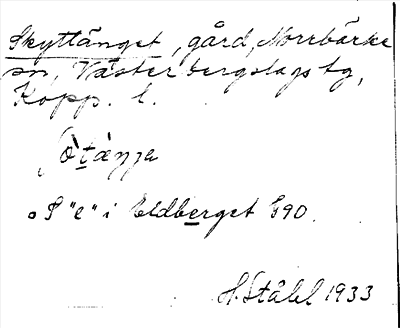 Skyttänget, gård, Norrbärke
sn, Västerbergslags tg,
Kopp. l.
ʃò̀tæ̀ŋja
o S "e" i Eldberget E90.
H. Ståhl 1933